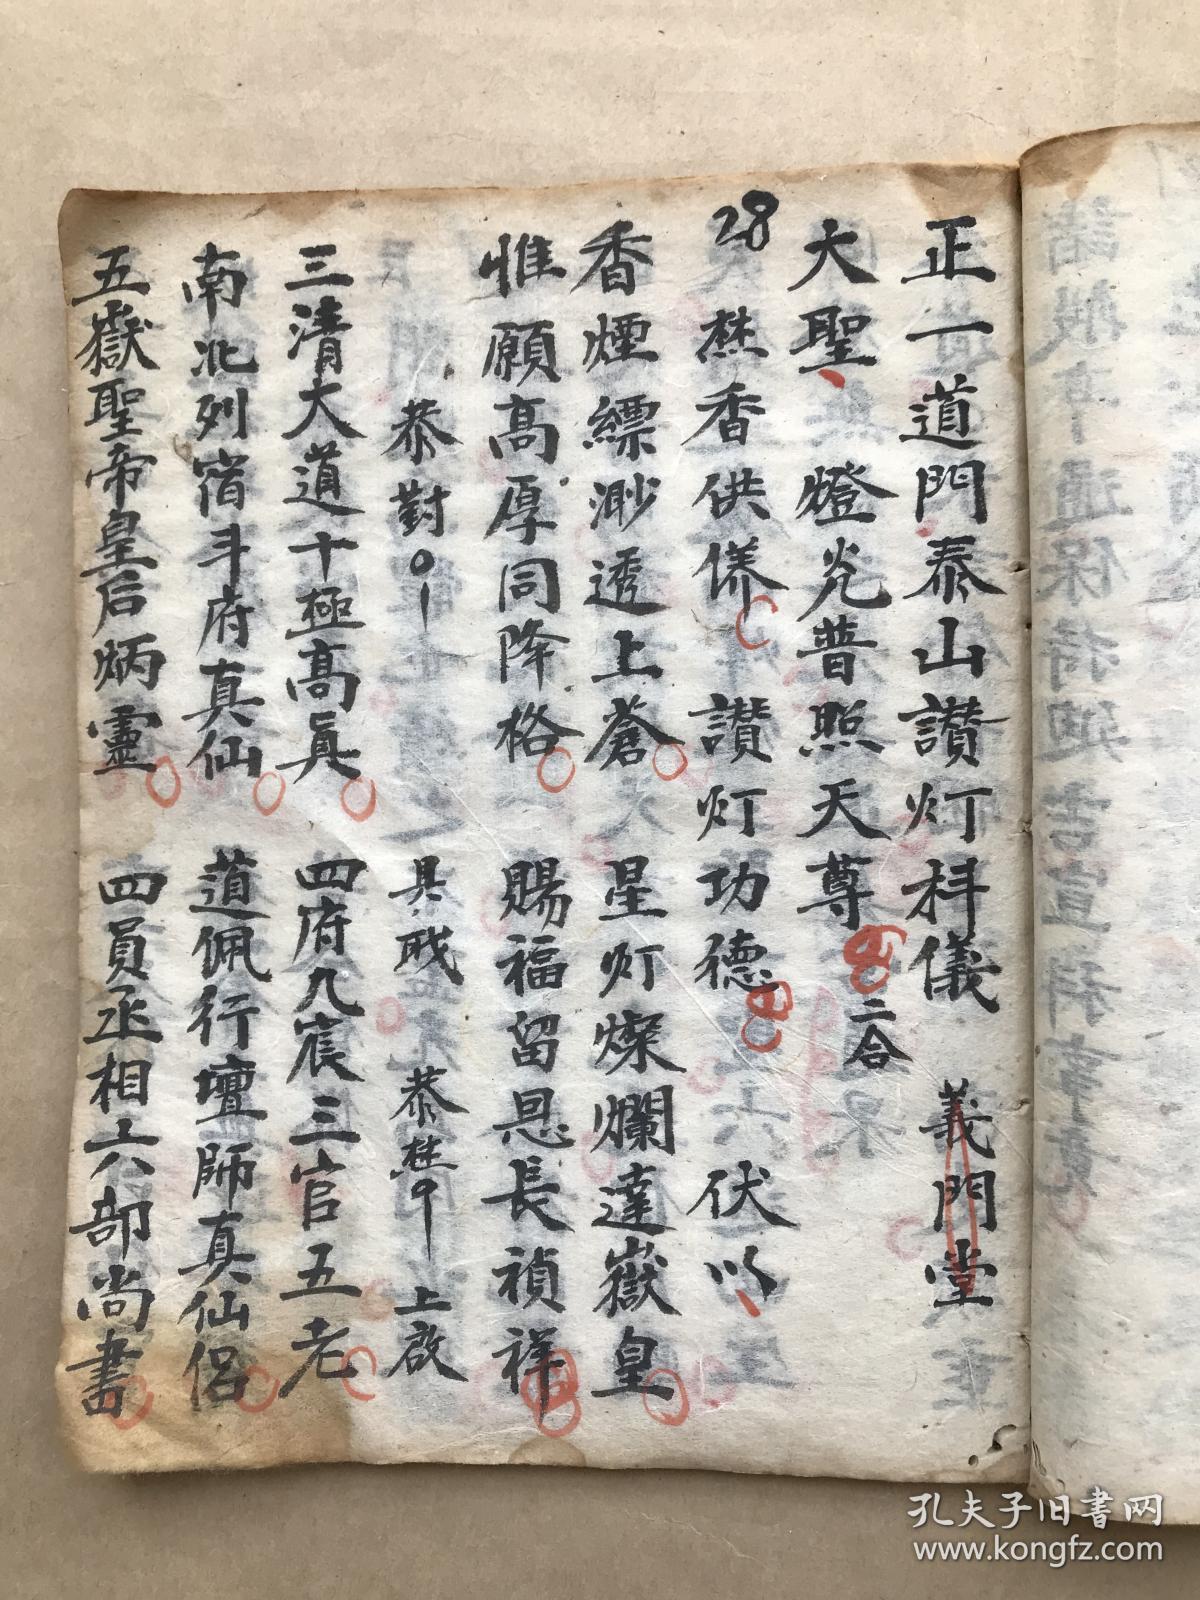 正一道門泰山讚灯科儀　義門堂
大聖　燈光普照天尊　二合
28　焚香供養　讚灯功德　伏以
香煙縹渺透上蒼　星灯燦爛達嶽皇
惟願高厚同降格　賜福留恩長禎祥
恭對　具職　恭焚　上啟
三清大道十極高真　四府九宸三官五老
南北列宿斗府真仙　道佩行壇師真仙侶
五嶽聖帝皇后炳靈　四員丞相六部尚書
孔夫子旧书网
www.kongfz.com